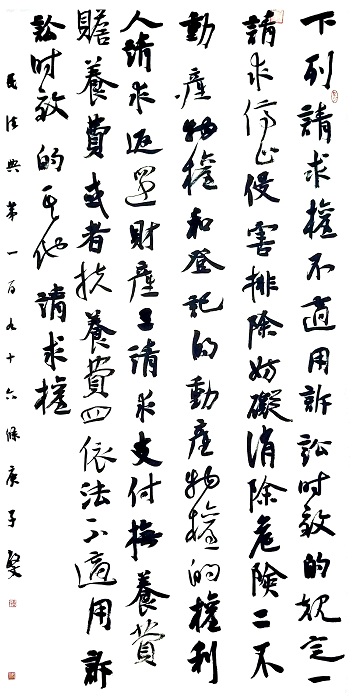 下列請求權不適用訴訟时效的规定一
請求停止侵害排除妨礙消除危險二不
動產物權和登記的動產物權的權利
人請求返還財產三請求支付撫養費
贍養費或者扶養費四依法不適用訴
訟时效的其他請求權
民法典第一百九十六條庚子